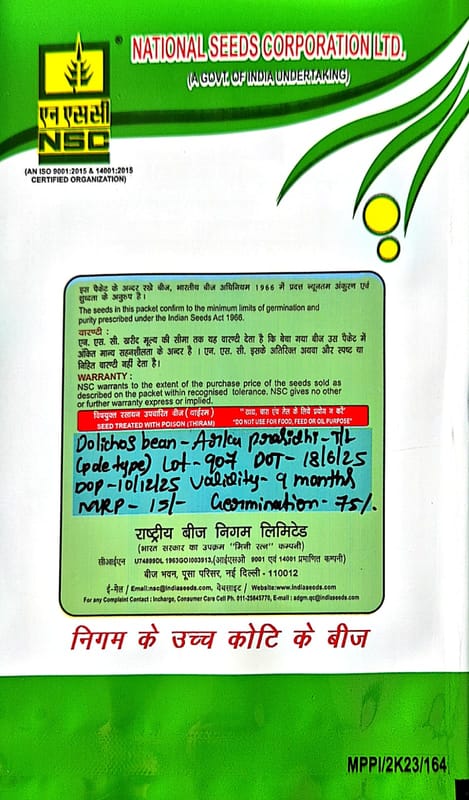 NATIONAL SEEDS CORPORATION LTD.
(A GOVT. OF INDIA UNDERTAKING)
एन एस सी
NSC
(AN ISO 9001:2015 & 14001:2015
CERTIFIED ORGANIZATION)
इस पैकेट के अन्दर रखे बीज, भारतीय बीज अधिनियम 1966 में प्रदत्त न्यूनतम अंकुरण एवं
शुध्दता के अनुरुप है।
The seeds in this packet confirm to the minimum limits of germination and
purity prescribed under the Indian Seeds Act 1966.
वारण्टी :
एन. एस. सी. खरीद मूल्य की सीमा तक यह वारण्टी देता है कि बेचा गया बीज उस पैकेट में
अंकित मान्य सहनशीलता के अन्दर है । एन. एस. सी. इसके अतिरिक्त अथवा और स्पष्ट या
निहित वारण्टी नहीं देता है।
WARRANTY :
NSC warrants to the extent of the purchase price of the seeds sold as
described on the packet within recognised tolerance. NSC gives no other
or further warranty express or implied.
विषयुक्त रसायन उपचारित बीज (थाईरम)
SEED TREATED WITH POISON (THIRAM)
"खाद्य, चारा एवं तेल के लिये प्रयोग न करें"
"DO NOT USE FOR FOOD, FEED OR OIL PURPOSE"
Dolichos bean - Arka - T/L
(pole type) Lot - 907 DOT - 18/6/25
DOP - 10/12/25 Validity - 9 months
MRP - 15/- Germination - 75%.
राष्ट्रीय बीज निगम लिमिटेड
(भारत सरकार का उपक्रम "मिनी रत्न" कम्पनी)
सीआईएन U74899DL 1963GOI003913, (आईएसओ 9001 एवं 14001 प्रमाणित कम्पनी)
बीज भवन, पूसा परिसर, नई दिल्ली - 110012
ई-मेल / Email:nsc@indiaseeds.com, वेबसाइट / Website:www.indiaseeds.com
For any Complaint Contact : Incharge, Consumer Care Cell Ph. 011-25845770, E-mail : adgm.qc@indiaseeds.com
निगम के उच्च कोटि के बीज
MPPI/2K23/164